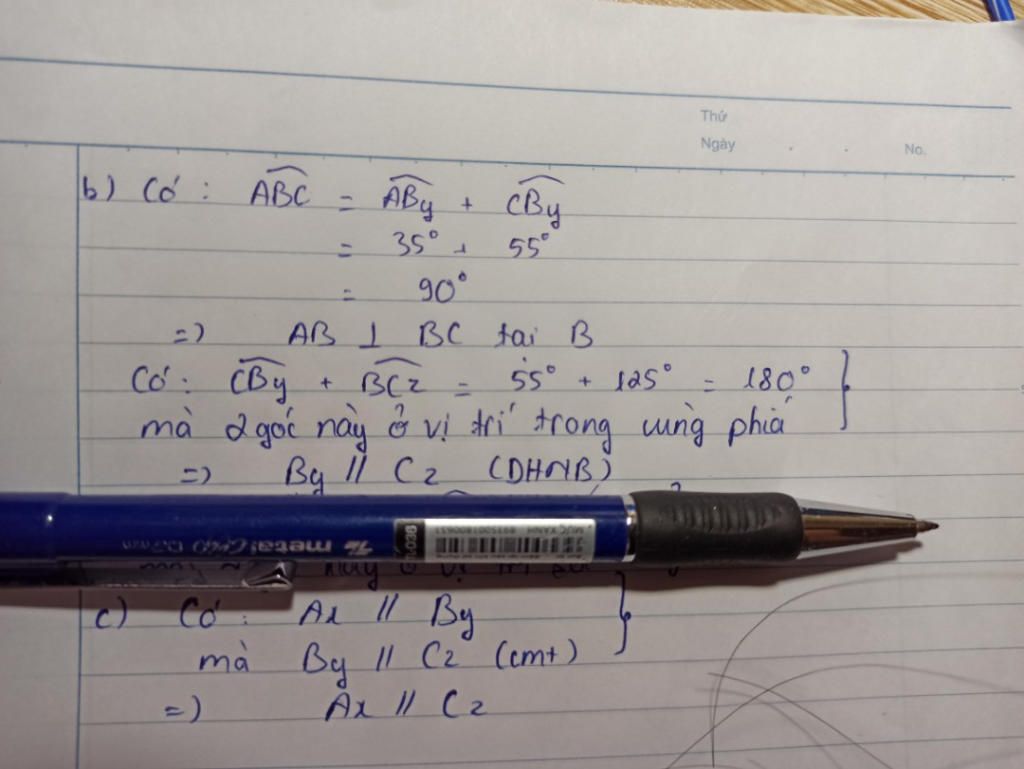 Thứ
Ngày . . No.
b) Có : ABC = ABy + CBy
= 35° + 55°
= 90°
=) AB ⊥ BC tại B
Có : CBy + BCz = 55° + 125° = 180° }
mà 2 góc này ở vị trí trong cùng phía
=) By // Cz (DHNB)
metal
038
này ở vị trí
c) Có : Ax // By }
mà By // Cz (cmt)
=) Ax // Cz